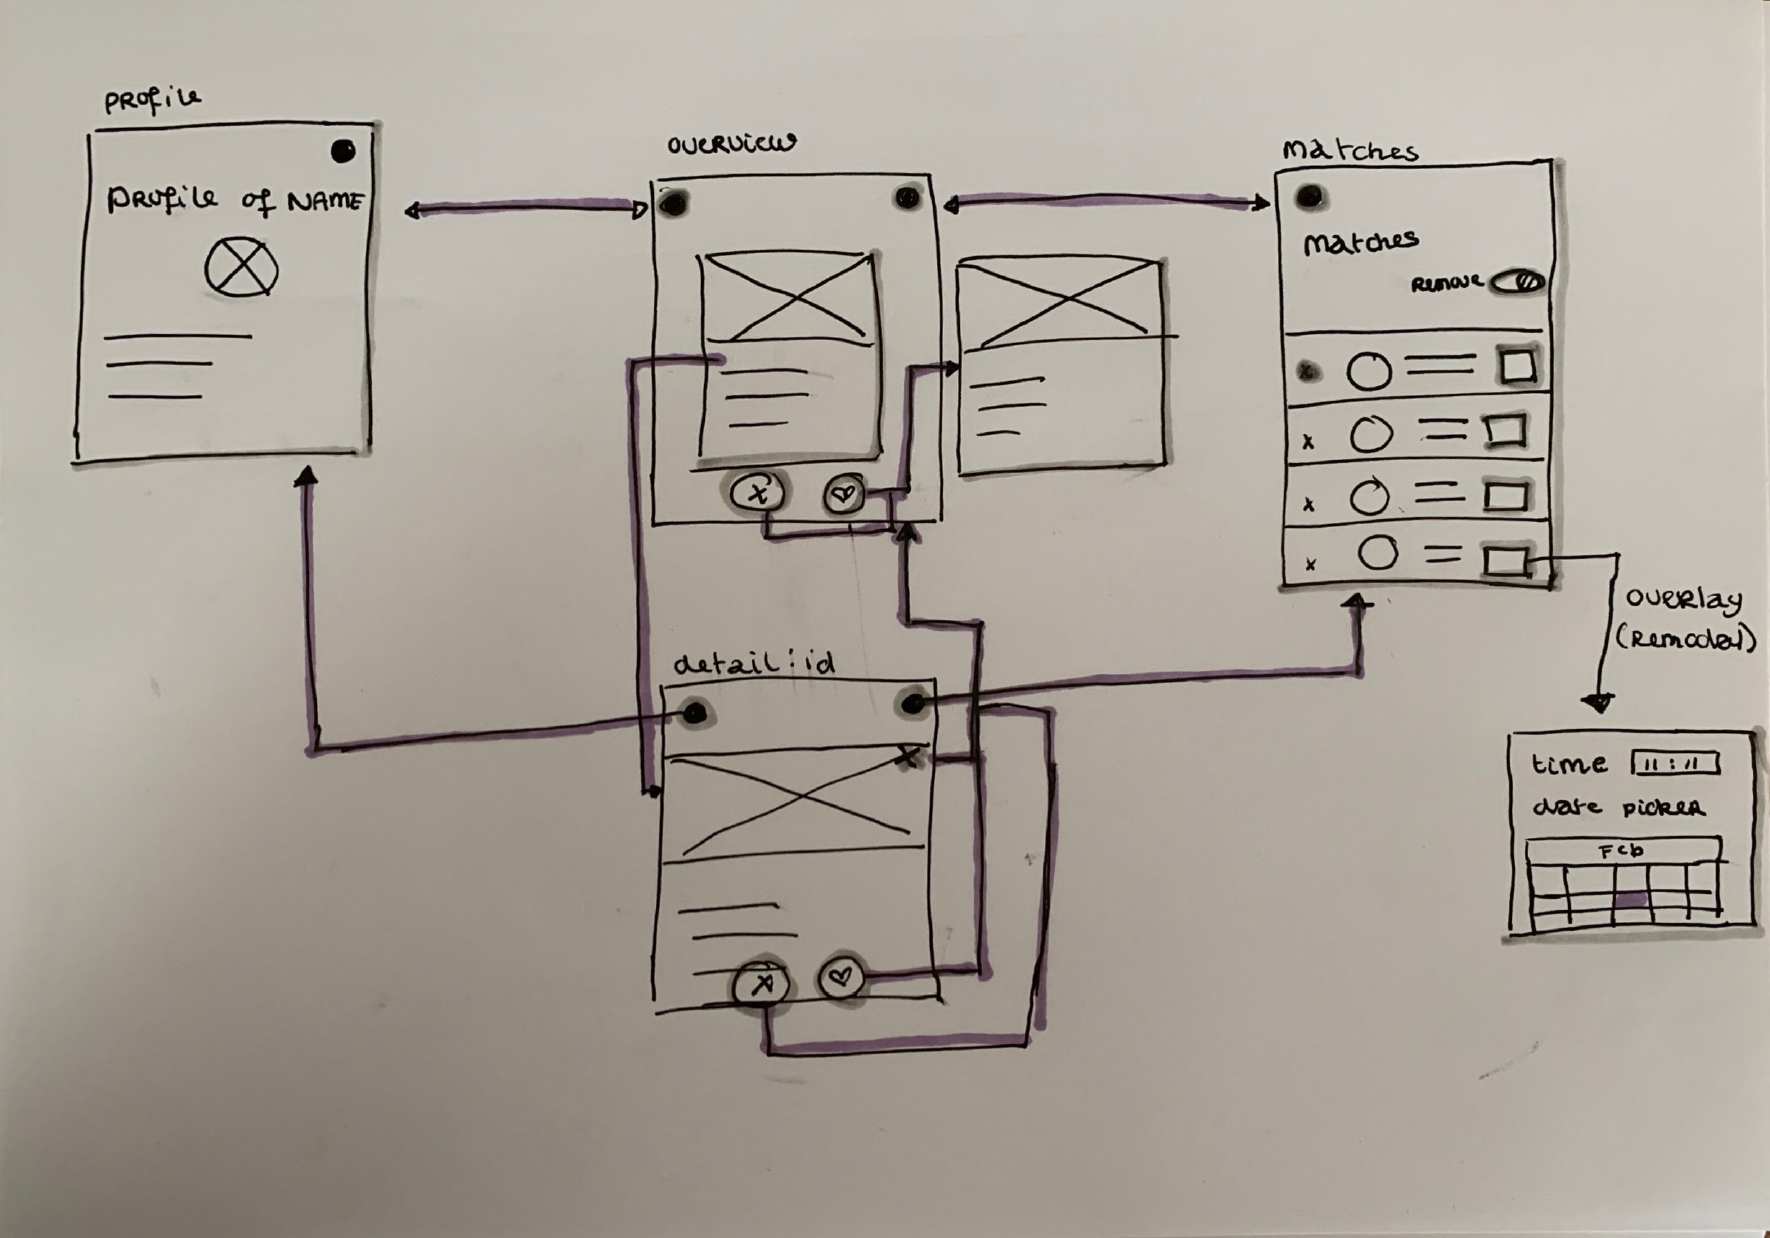 PROfile
PROfile of NAME
OVERVIEW
x
matches
matches
REMOVE
x
x
x
x
OVERLAY
(REmodal)
detail:id
x
x
time 11:11
date PICKER
Feb